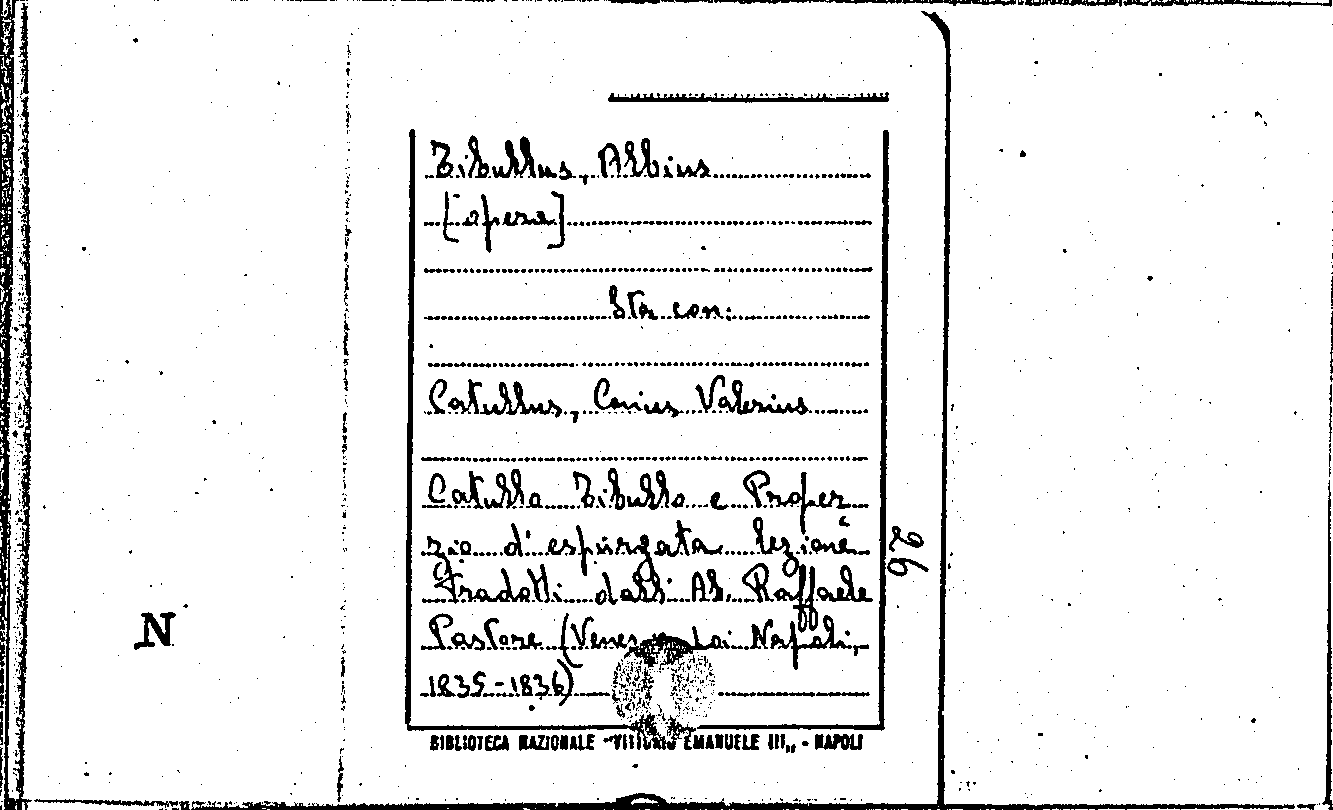 Tibullus, Albius
[opera]
Sta con:
Catullus, Caius Valerius
Catullo Tibullo e Proper
zio d'espurgata lezione
Tradotti dall' Ab. Raffaele
Pastore (Napoli,
1835-1836)
BIBLIOTECA NAZIONALE "VITTORIO EMANUELE III" - NAPOLI
26
N